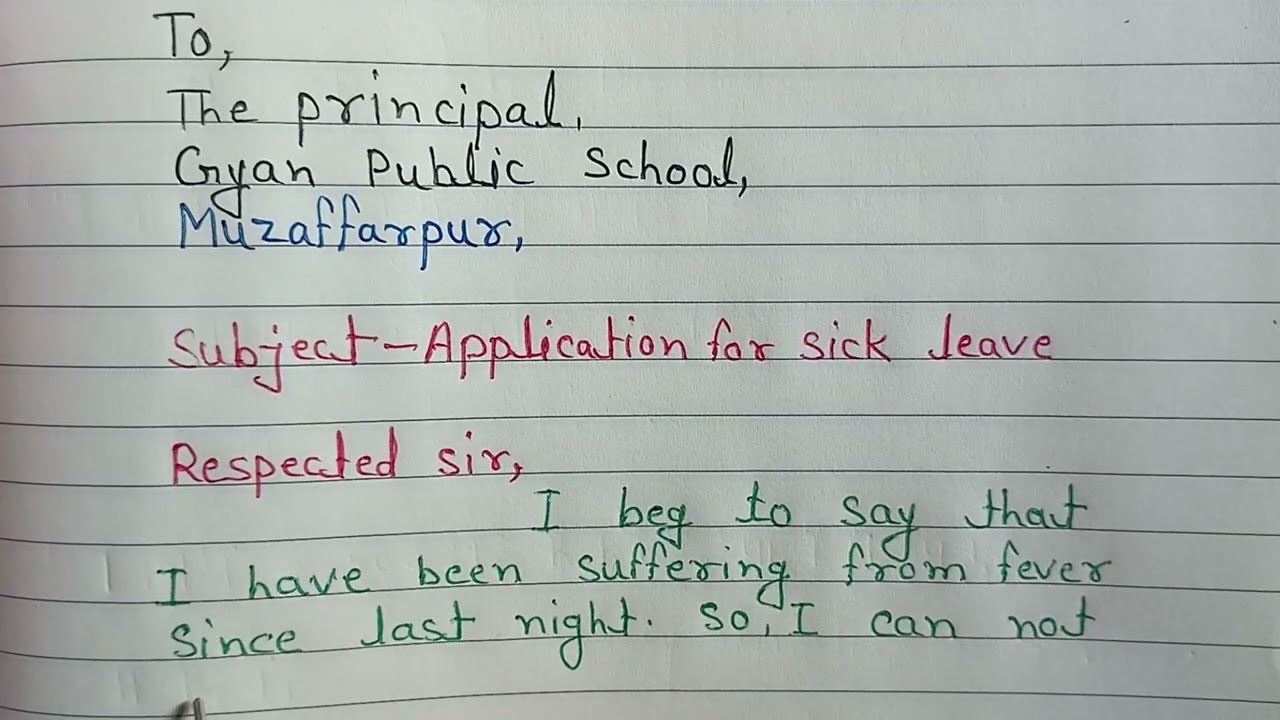 To,
The principal,
Gyan Public School,
Muzaffarpur,
Subject-Application for sick leave
Respected sir,
I beg to say that
I have been suffering from fever
since last night. so, I can not